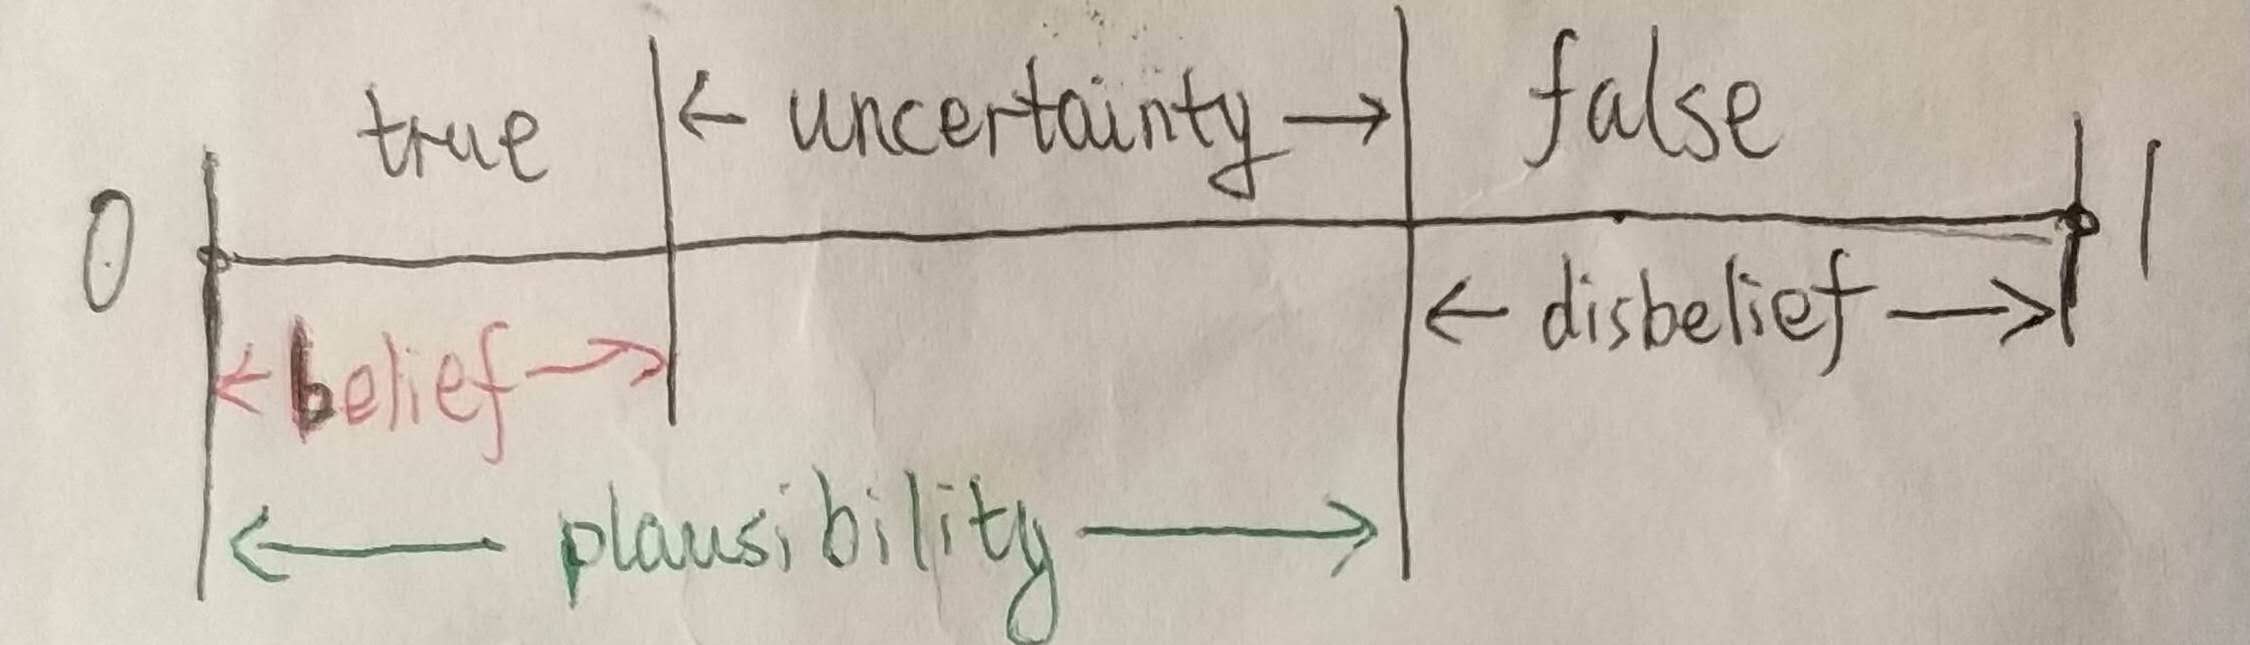 true ← uncertainty → false
0 1
← belief → ← disbelief →
← plausibility →